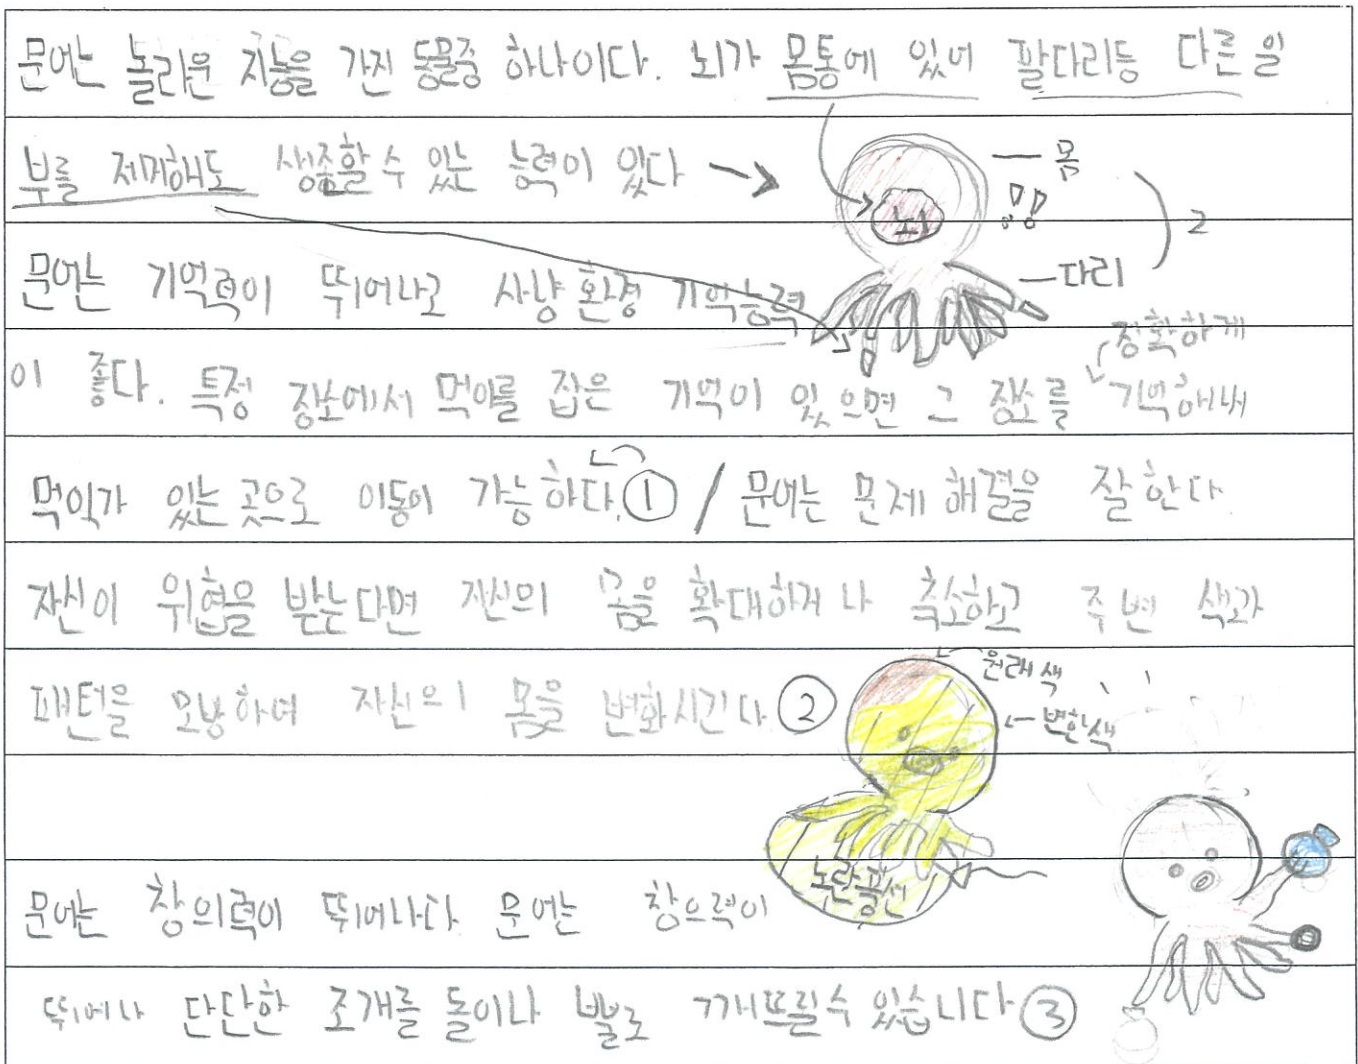 문어는 놀라운 지능을 가진 동물중 하나이다. 뇌가 몸통에 있어 팔다리등 다른 일
부를 제거해도 생존할 수 있는 능력이 있다 →
몸
뇌
2
다리
문어는 기억력이 뛰어나고 사냥 환경 기억능력
정확하게
이 좋다. 특정 장소에서 먹이를 잡은 기억이 있으면 그 장소를 기억해내
먹이가 있는 곳으로 이동이 가능하다. ① / 문어는 문제 해결을 잘 한다
자신이 위협을 받는다면 자신의 몸을 확대하거나 축소하고 주변 색과
원래색
패턴을 모방하여 자신의 몸을 변화시킨다 ②
←변한색
노란풍선
문어는 창의력이 뛰어나다 문어는 창으력이
뛰어나 단단한 조개를 돌이나 뿔로 깨뜨릴수 있습니다 ③